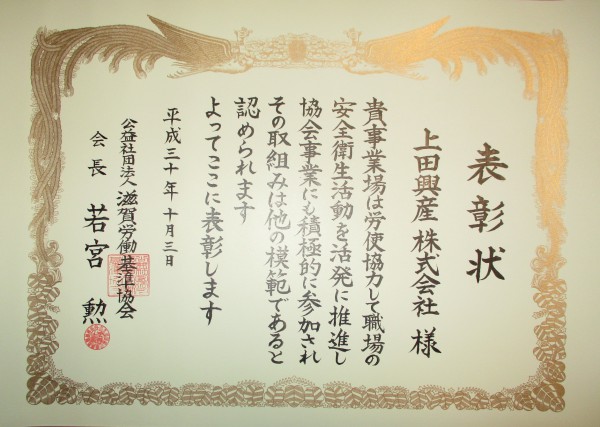 表彰状
上田興産 株式会社 様
貴事業場は労使協力して職場の
安全衛生活動を活発に推進し
協会事業にも積極的に参加され
その取組みは他の模範であると
認められます
よってここに表彰します
平成三十年十月三日
公益社団法人 滋賀労働基準協会
会長 若宮 勲